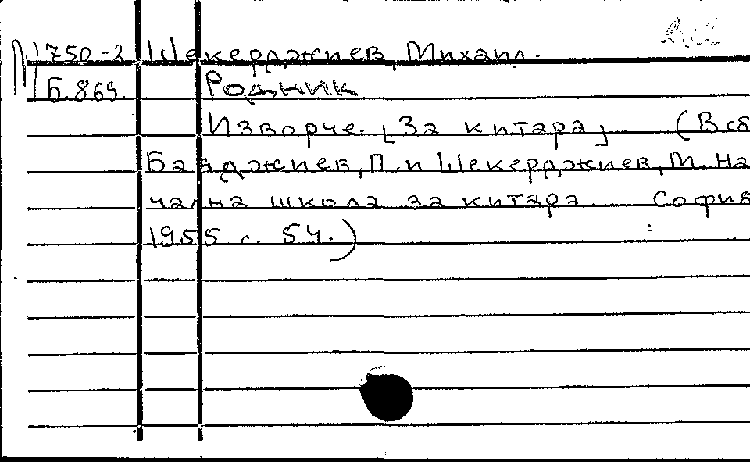 М 750-2 Шекерджиев, Михаил.
Б.869. Родник
Изворче. [За китара] (В сб
Баяджиев, П. и Шекерджиев, М. На
чална школа за китара София
1955 с. 54.)